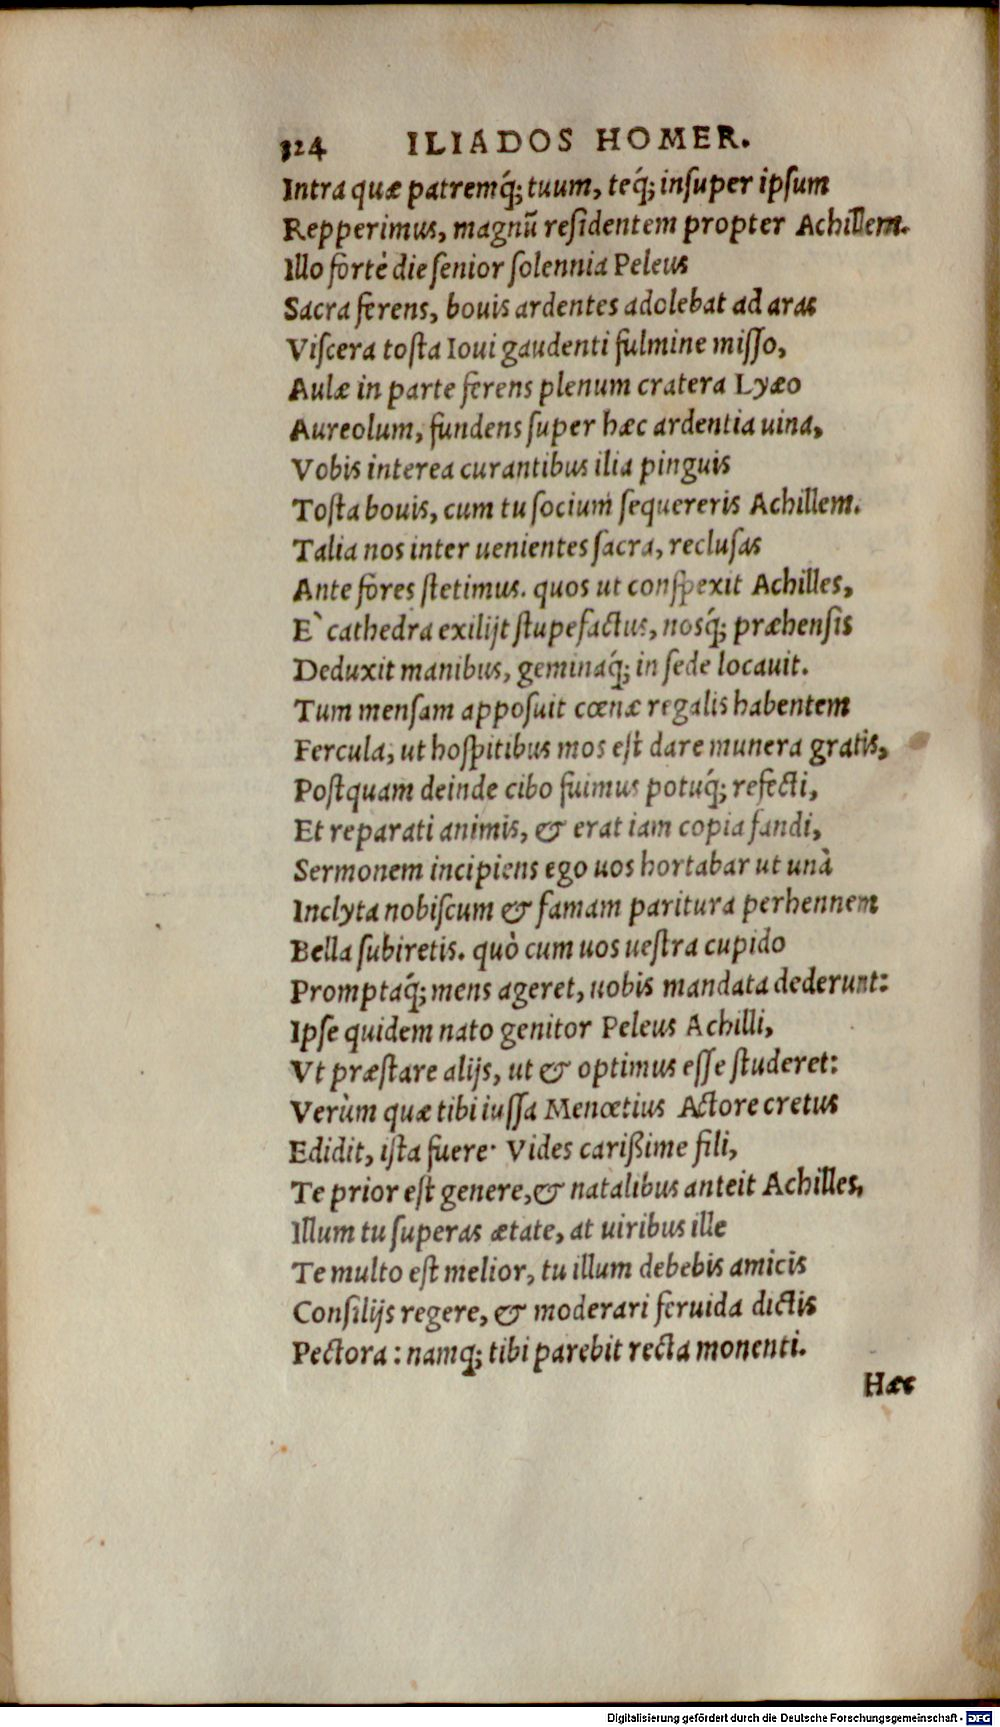 324 ILIADOS HOMER.
Intra quæ patremq́; tuum, teq́; insuper ipsum
Repperimus, magnũ residentem propter Achillem.
Illo fortè die senior solennia Peleus
Sacra ferens, bouis ardentes adolebat ad aras
Viscera tosta Ioui gaudenti fulmine misso,
Aulæ in parte ferens plenum cratera Lyæo
Aureolum, fundens super hæc ardentia uina,
Vobis interea curantibus ilia pinguis
Tosta bouis, cum tu socium sequereris Achillem.
Talia nos inter uenientes sacra, reclusas
Ante fores stetimus. quos ut conspexit Achilles,
E` cathedra exilijt stupefactus, nosq́; præhensis
Deduxit manibus, geminaq́; in sede locauit.
Tum mensam apposuit cœnæ regalis habentem
Fercula, ut hospitibus mos est dare munera gratis,
Postquam deinde cibo fuimus potuq́; refecti,
Et reparati animis, & erat iam copia fandi,
Sermonem incipiens ego uos hortabar ut unà
Inclyta nobiscum & famam paritura perhennem
Bella subiretis. quò cum uos uestra cupido
Promptaq́; mens ageret, uobis mandata dederunt:
Ipse quidem nato genitor Peleus Achilli,
Vt præstare alijs, ut & optimus esse studeret:
Verùm quæ tibi iussa Menœtius Actore cretus
Edidit, ista fuere· Vides carißime fili,
Te prior est genere, & natalibus anteit Achilles,
Illum tu superas ætate, at uiribus ille
Te multo est melior, tu illum debebis amicis
Consilijs regere, & moderari feruida dictis
Pectora : namq; tibi parebit recta monenti.
Hæc
Digitalisierung gefördert durch die Deutsche Forschungsgemeinschaft - DFG